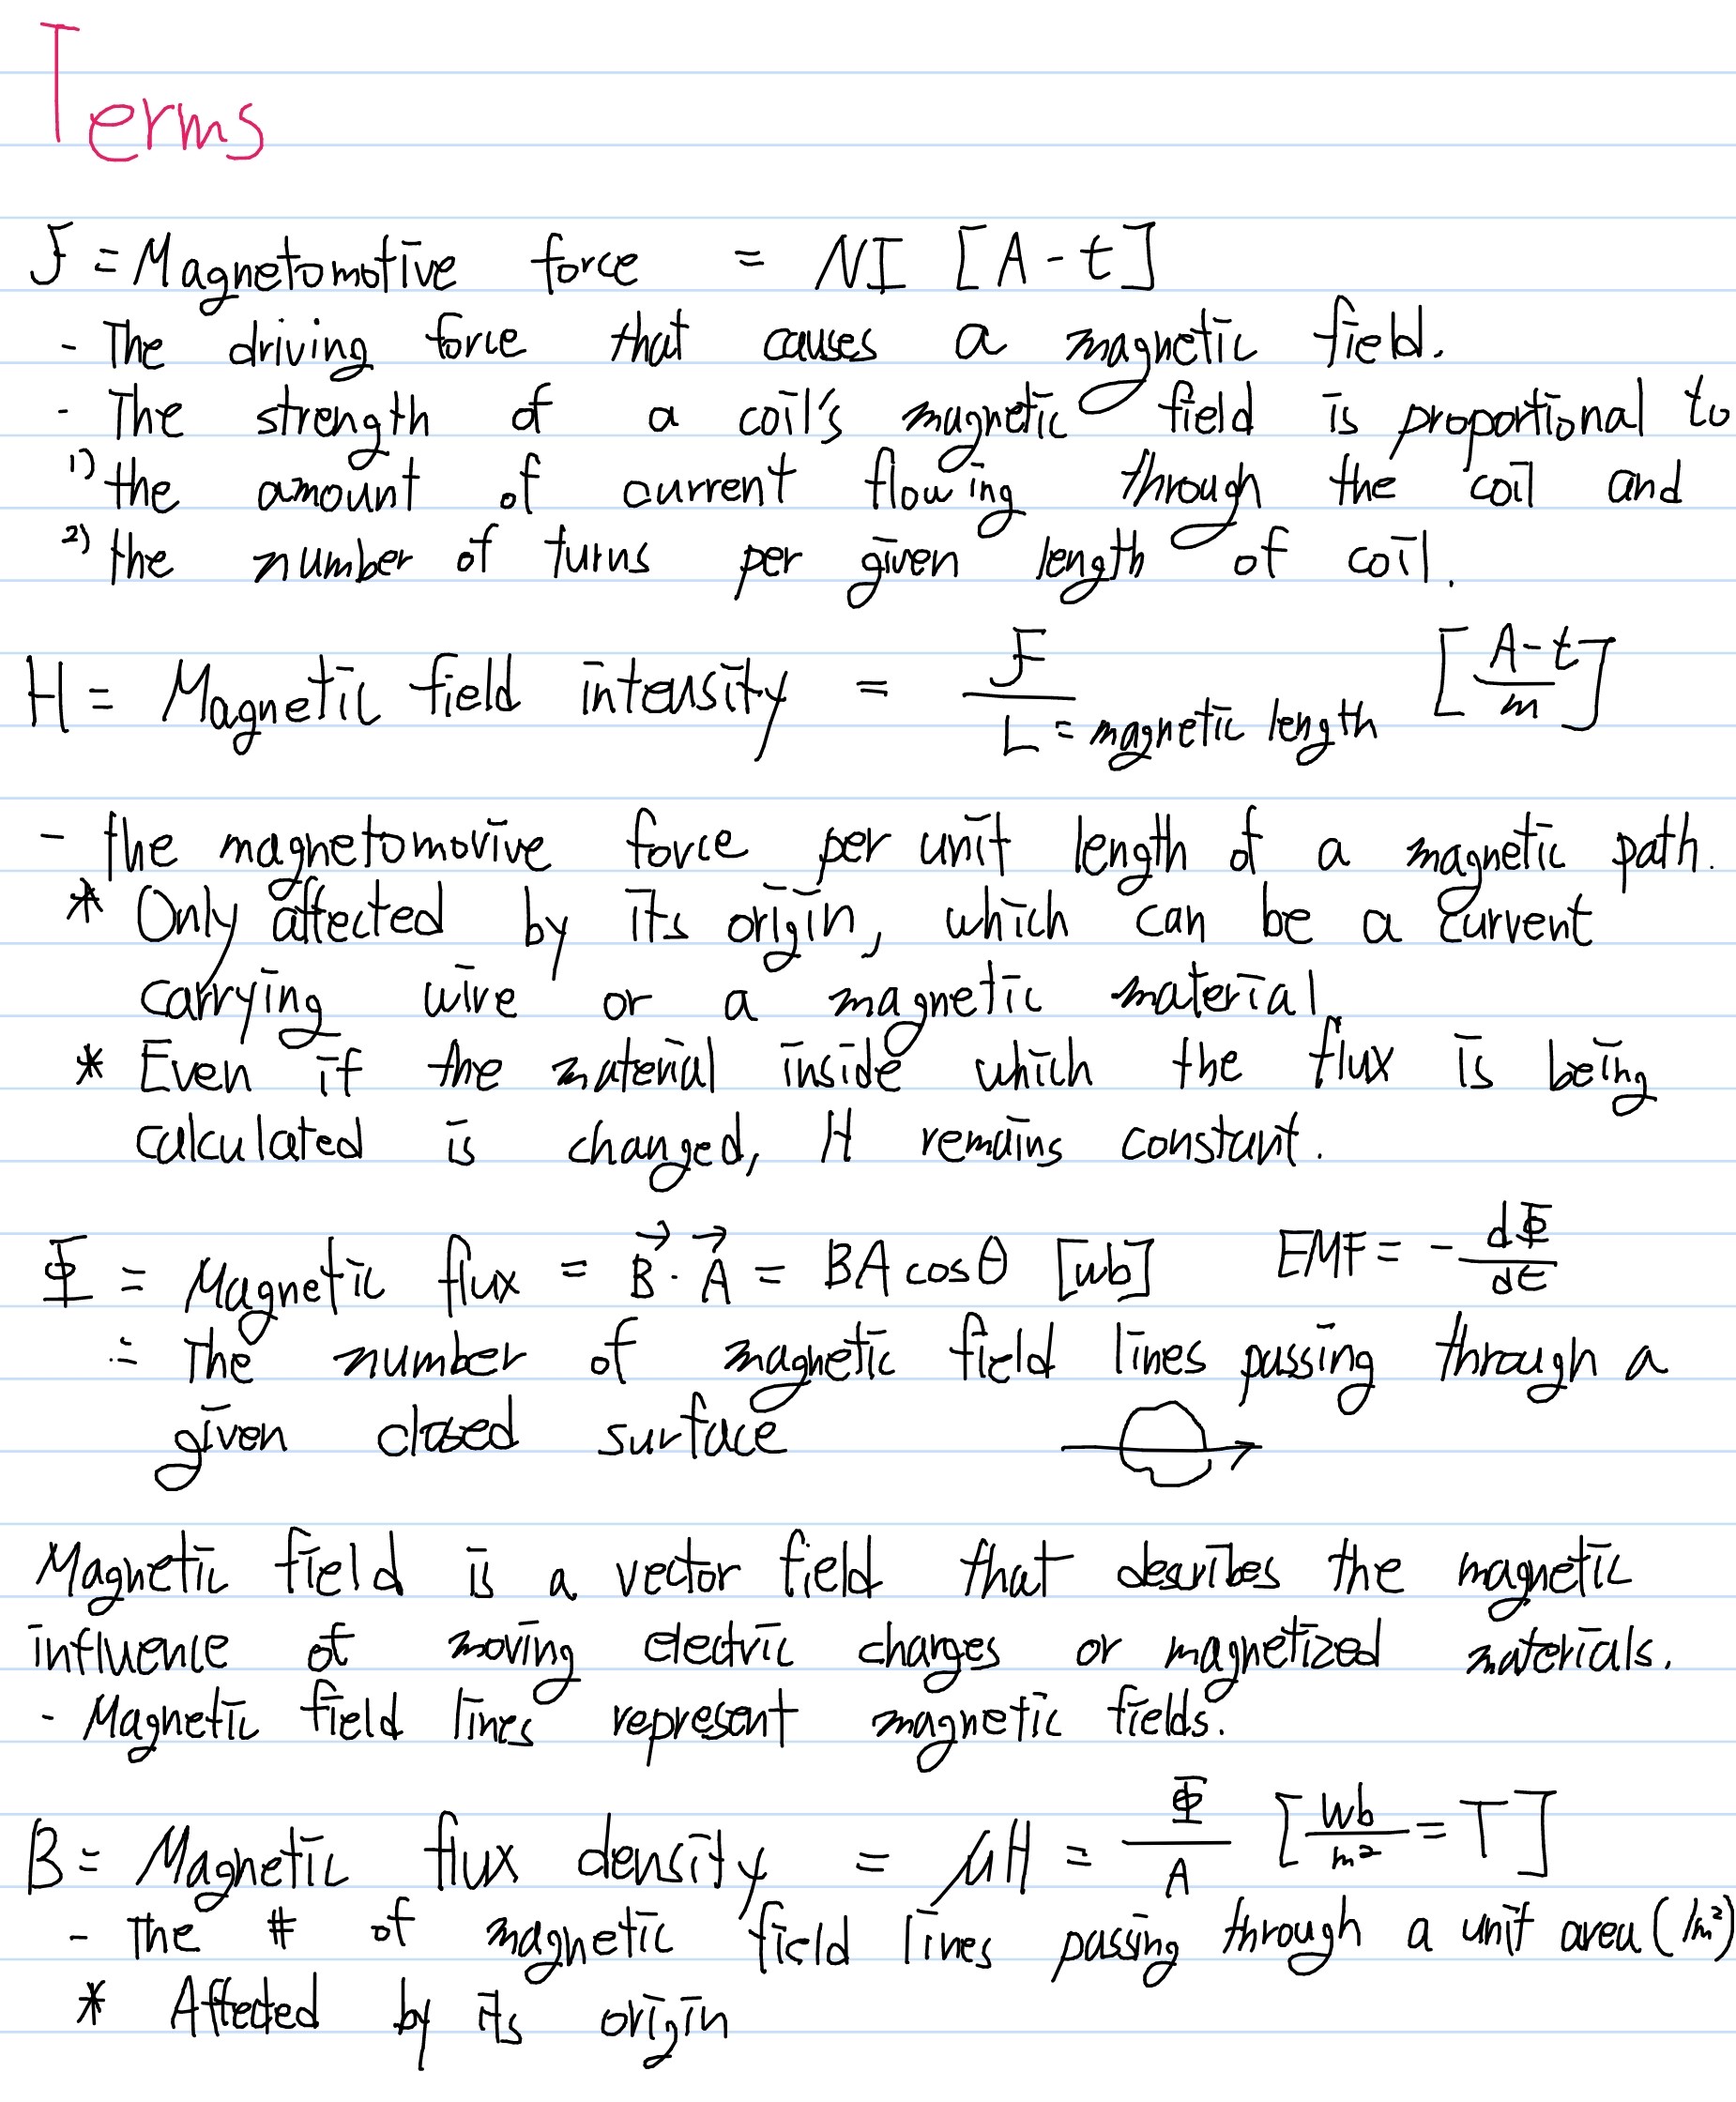 Terms
F = Magnetomotive force = NI [A-t]
- The driving force that causes a magnetic field.
- The strength of a coil's magnetic field is proportional to
1) the amount of current flowing through the coil and
2) the number of turns per given length of coil.
H = Magnetic field intensity = F / L = magnetic length [A-t / m]
- the magnetomovive force per unit length of a magnetic path.
* Only affected by its origin, which can be a current
carrying wire or a magnetic material.
* Even if the material inside which the flux is being
calculated is changed, H remains constant.
Φ = Magnetic flux = B⃗ · A⃗ = BA cosθ [wb] EMF = - dΦ/dt
= The number of magnetic field lines passing through a
given closed surface
Magnetic field is a vector field that describes the magnetic
influence of moving electric charges or magnetized materials.
- Magnetic field lines represent magnetic fields.
B = Magnetic flux density = μH = Φ/A [Wb/m² = T]
- The # of magnetic field lines passing through a unit area (1m²)
* Affected by its origin